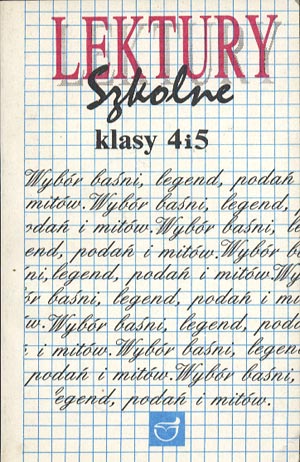 LEKTURY
Szkolne
klasy 4i5
Wybór baśni, legend, podań
mitów. Wybór baśni, legend,
odań i mitów. Wybór baśni, le
end, podań i mitów. Wybór ba
ni, legend, podań i mitów. Wy
ór baśni, legend, podań i mi
ów. Wybór baśni, legend, poda
i mitów. Wybór baśni, legen
podań i mitów. Wybór baśni,
egend, podań i mitów.